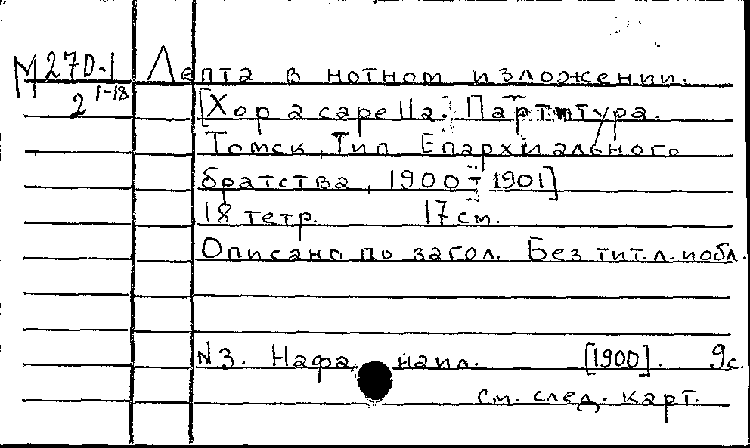 М 270-1 Лепта в нотном изложении.
2 1-18 [Хор a capella.] Партитура.
Томск, Тип. Епархиального
братства, 1900-1901]
18 тетр. 17 см.
Описано по загол. Без тит.л. и обл.
N3. Нафа наил. [1900]. 9с.
см. след. карт.